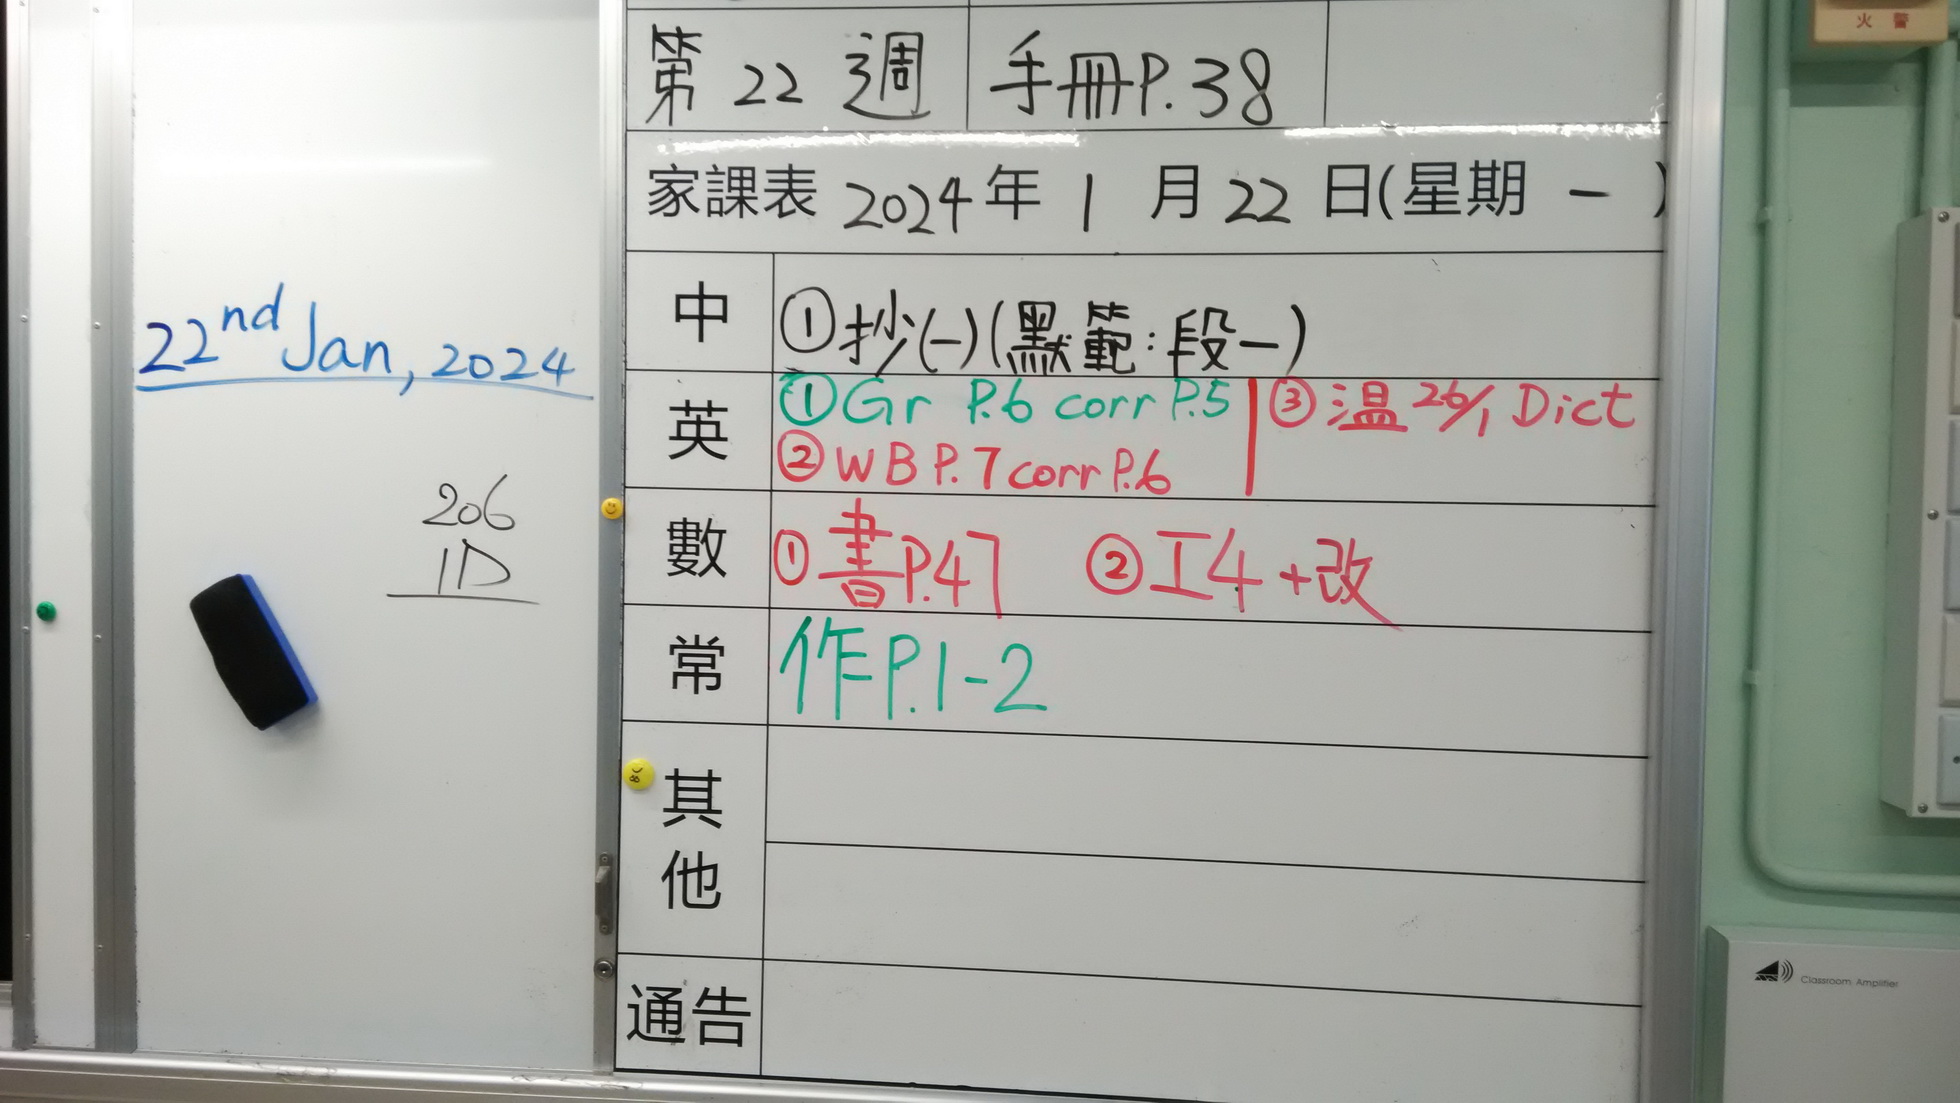 火 警
第 22 週 手冊P.38
家課表 2024年 1 月 22 日(星期 一 )
22nd Jan, 2024
206
1D
中 ①抄(一)(默範:段一)
英 ①Gr P.6 corr P.5 ③温26/1 Dict
②WB P.7 corr P.6
數 ①書P.47 ②工4+改
常 作P.1-2
其
他
通告
Classroom Amplifier